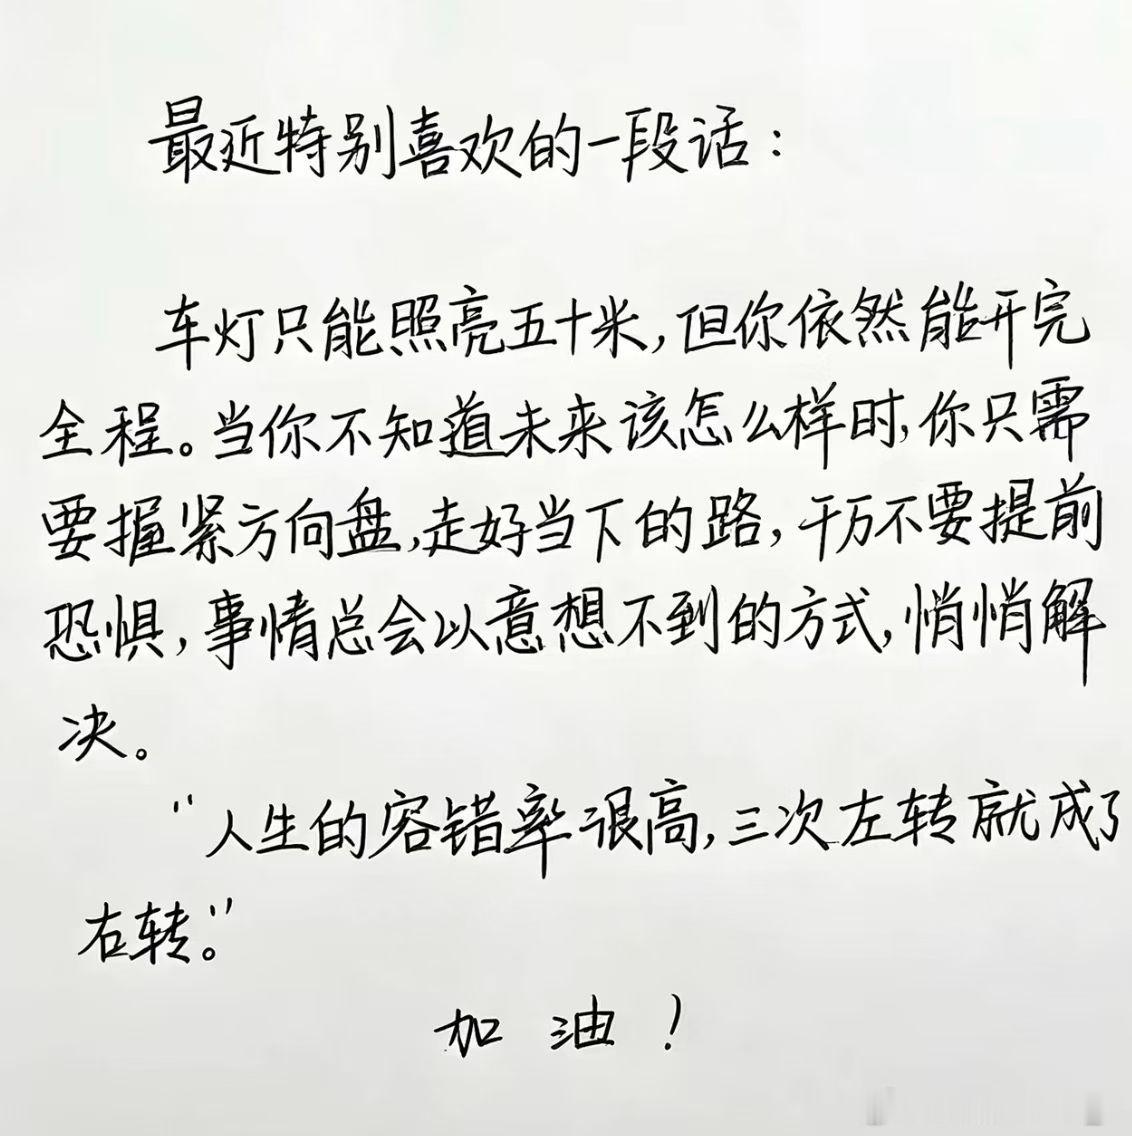 最近特别喜欢的一段话：
车灯只能照亮五十米，但你依然能开完
全程。当你不知道未来该怎么样时，你只需
要握紧方向盘，走好当下的路，千万不要提前
恐惧，事情总会以意想不到的方式，悄悄解
决。
“人生的容错率很高，三次左转就成了
右转。”
加油！